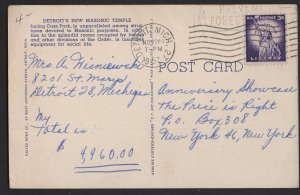 4
DETROIT'S NEW MASONIC TEMPLE
facing Cass Park, is unsurpassed among structures devoted to Masonic purposes. In addition to the splendid rooms occupied by lodges and other divisions of the Order, is luxurious equipment for social life.
DETROIT, MICH.
PM
PREVENT
FOREST
LIBERTY
POST CARD
Mrs. A. Wisnewski
8201 St. Marys
Detroit 28, Michigan
My
total is
$ 4,960.00
Anniversary Showcase
The Price is Right
P.O. Box 308
New York 46, New York